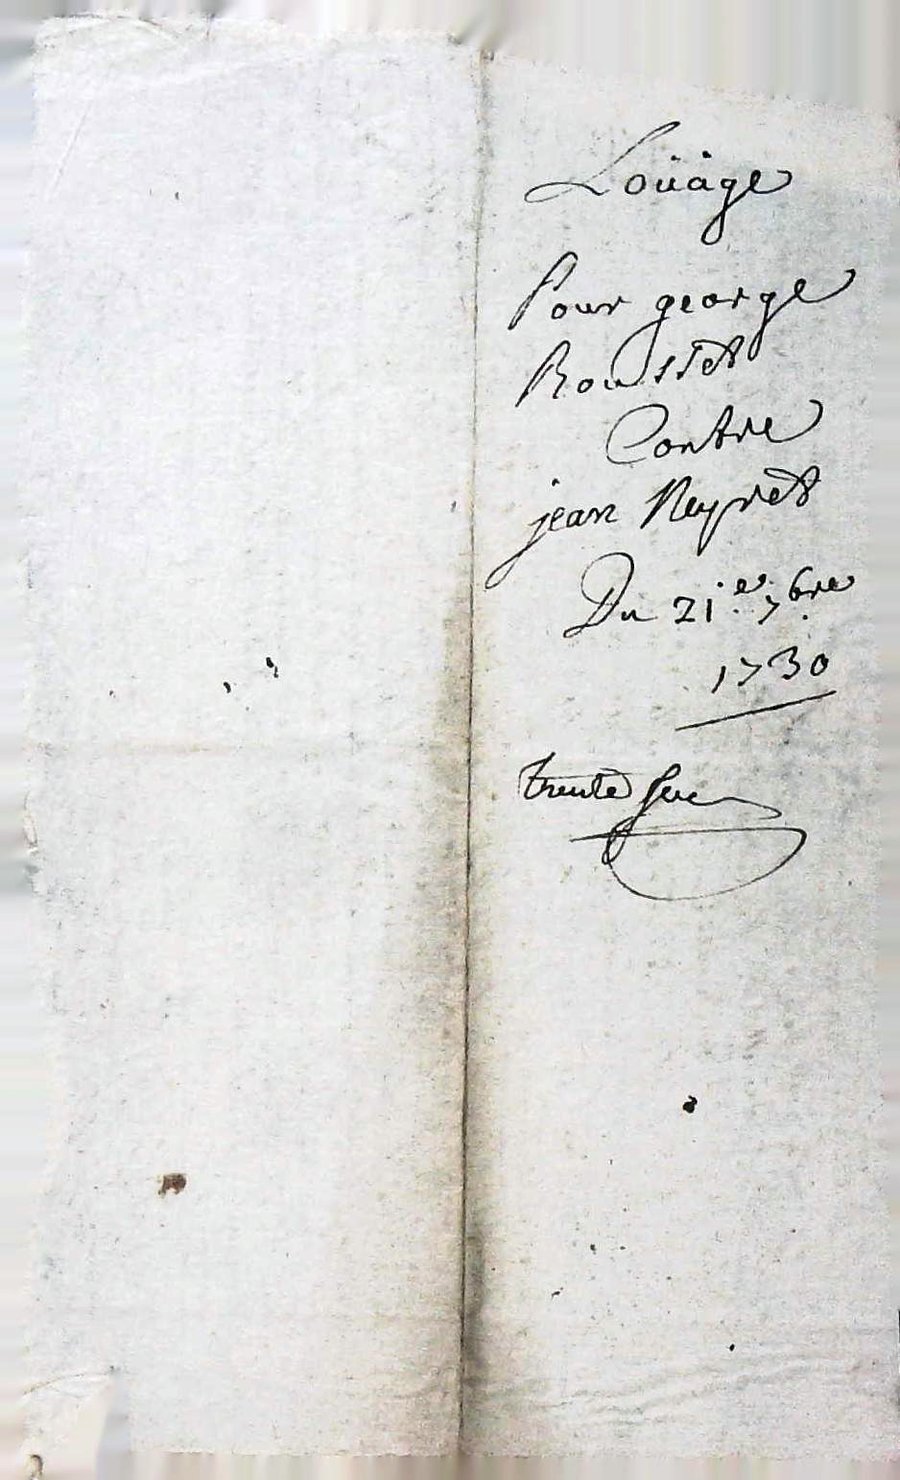 Loüage
Pour george
Roussèt
Contre
jean Neyrèt
Du 21.e 7.bre
1730
trente